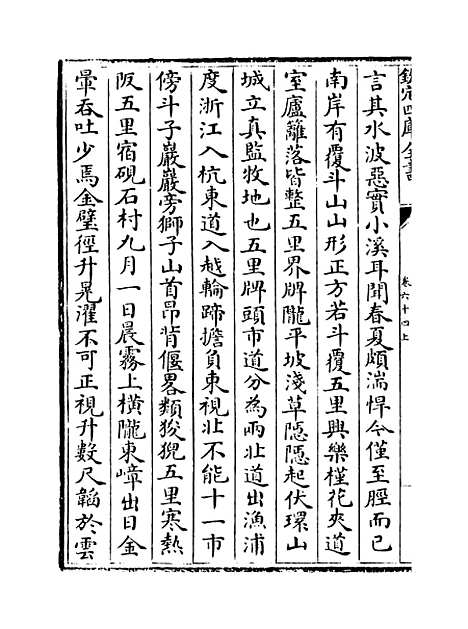 欽定四庫全書
卷六十四上
言其水波惡實小溪耳聞春夏頗湍悍今僅至脛而已
南岸有覆斗山山形正方若斗覆五里興樂槿花夾道
室廬籬落皆整五里界牌隴平坡淺草隱隱起伏環山
城立真監牧地也五里牌頭市道分為兩北道出漁浦
度浙江入杭東道入越輪蹄擔負東視北不能十一市
傍斗子巖巖旁獅子山首昂背偃畧類狻猊五里寒熱
阪五里宿硯石村九月一日晨霧上橫隴東嶂出日金
暈吞吐少焉金璧徑升晃濯不可正視升數尺韜於雲